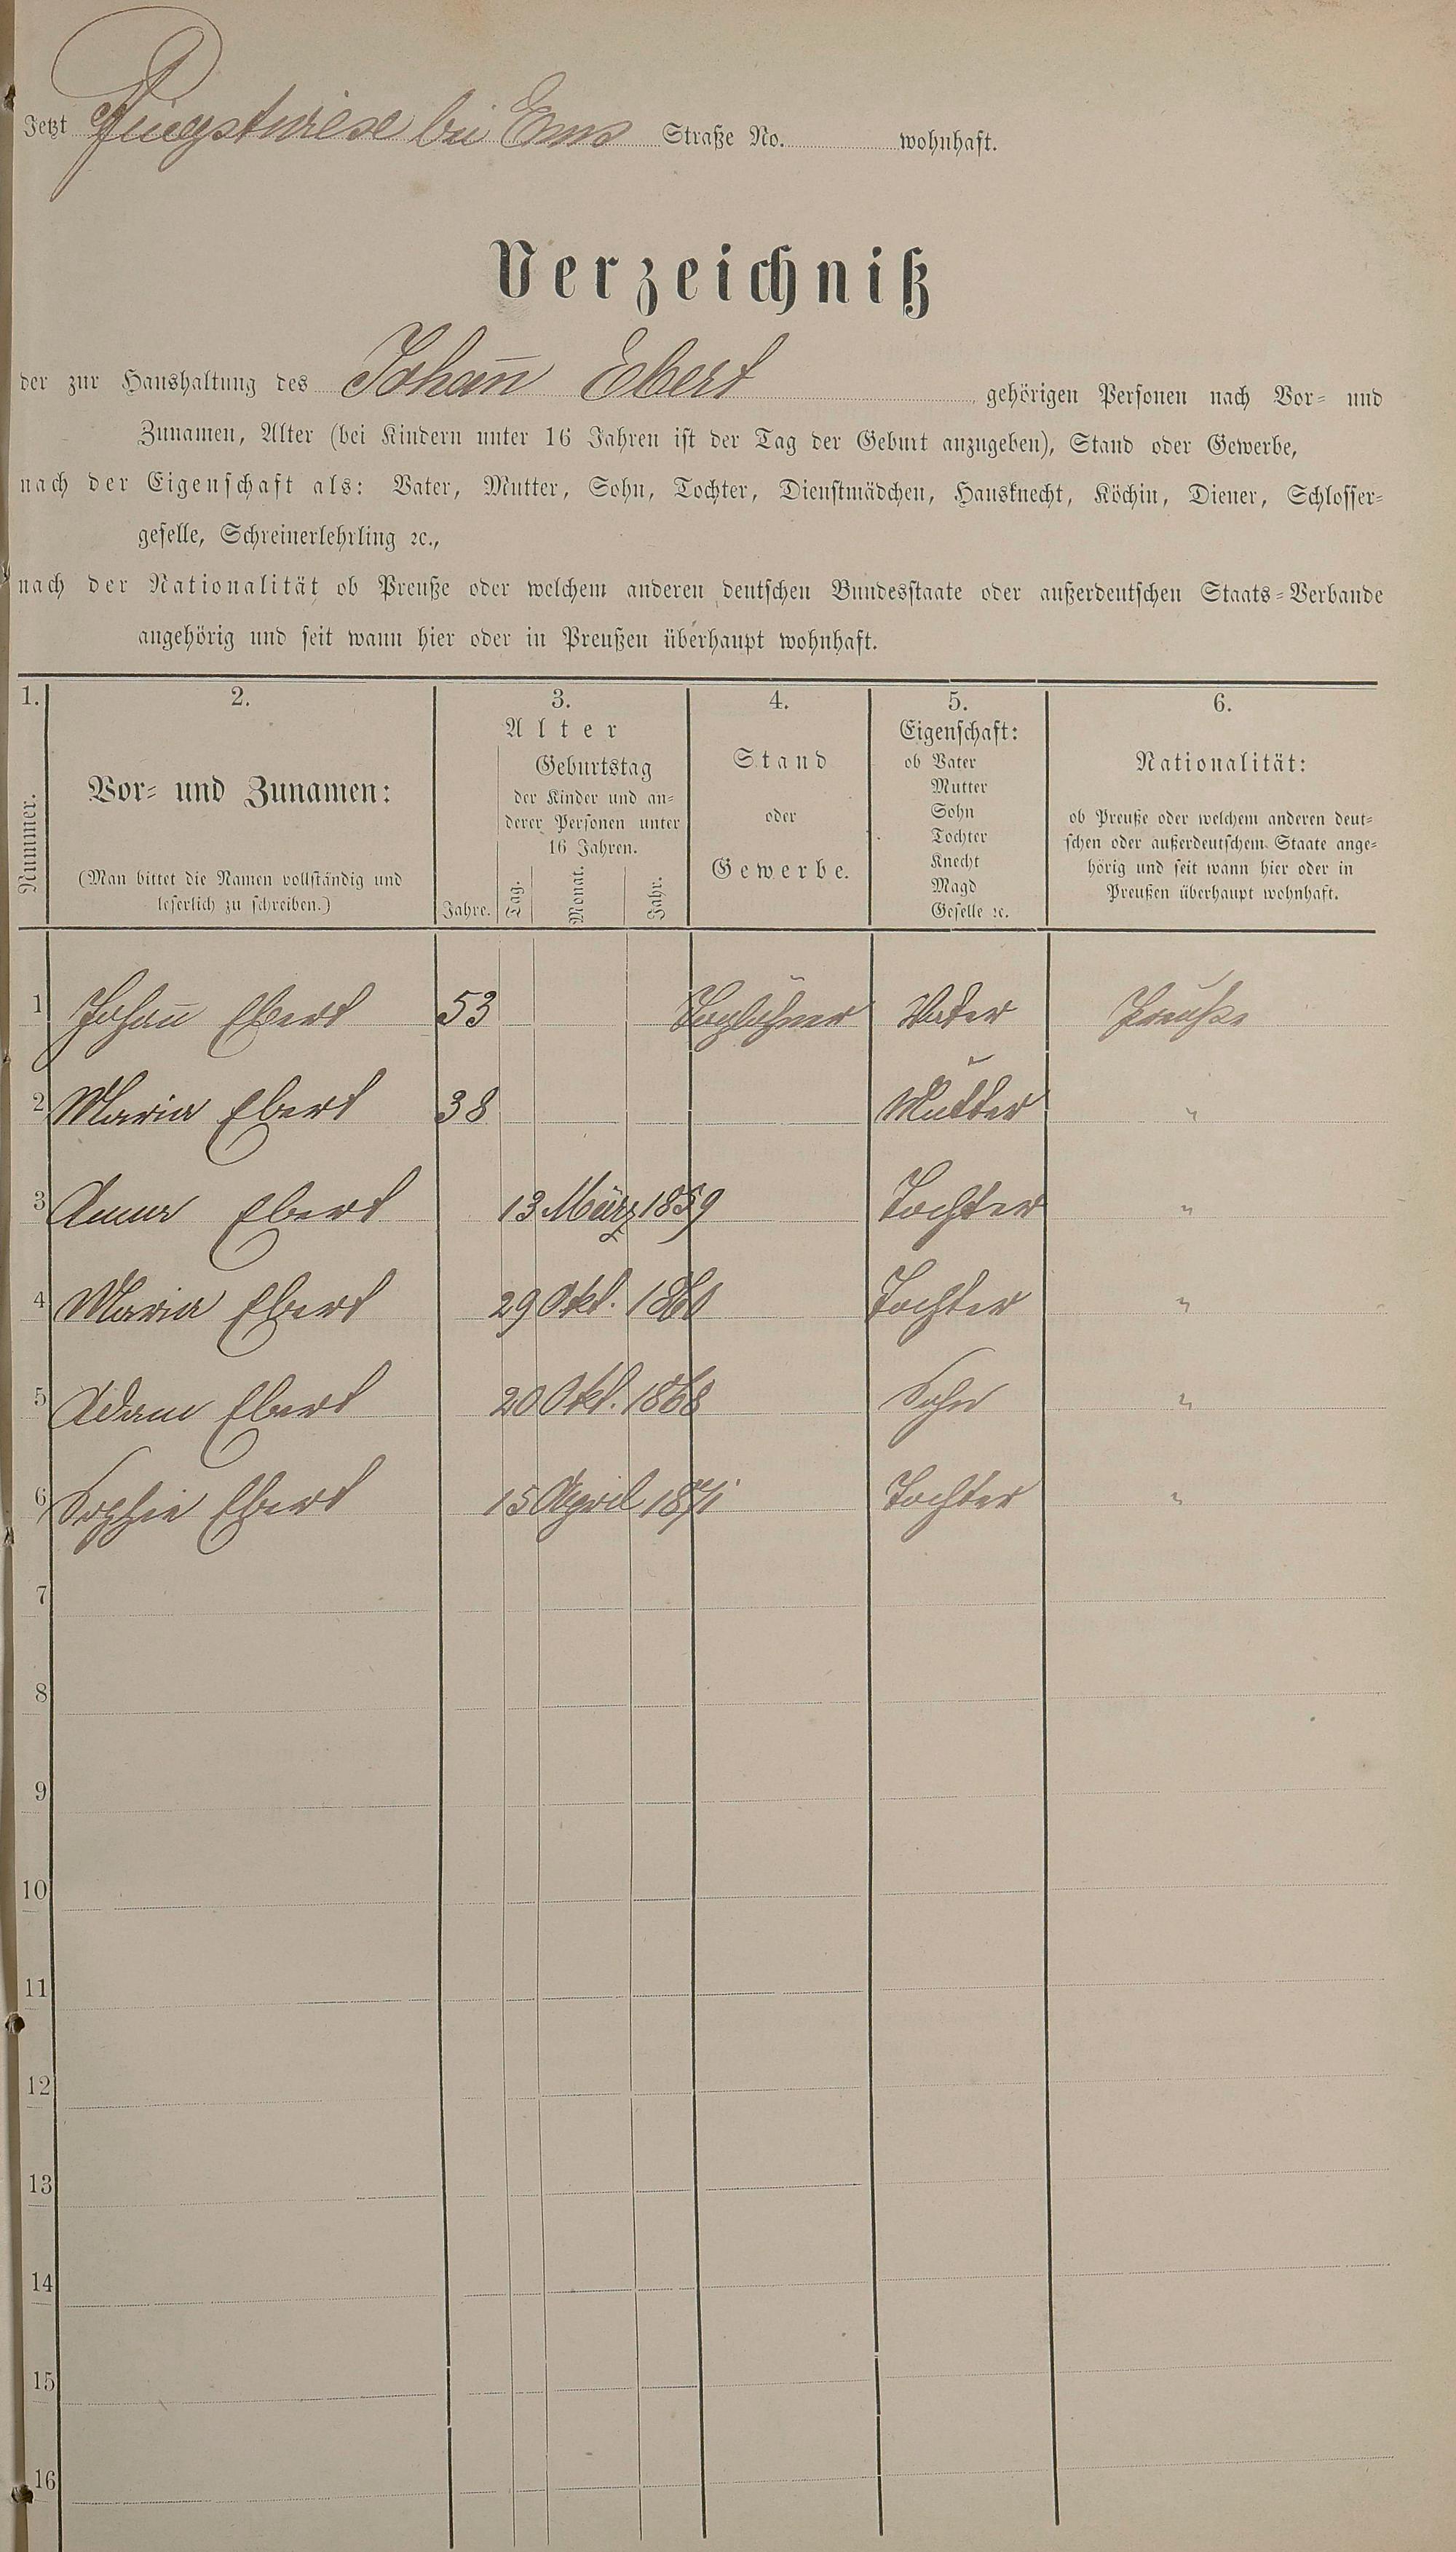 Jetzt Pfingstwiese bei Ems Straße No. wohnhaft.
Verzeichniß
der zur Haushaltung des Johan̄ Ebert gehörigen Personen nach Vor- und
Zunamen, Alter (bei Kindern unter 16 Jahren ist der Tag der Geburt anzugeben), Stand oder Gewerbe,
nach der Eigenschaft als: Vater, Mutter, Sohn, Tochter, Dienstmädchen, Hausknecht, Köchin, Diener, Schlosser-
geselle, Schreinerlehrling ꝛc.,
nach der Nationalität ob Preuße oder welchem anderen deutschen Bundesstaate oder außerdeutschen Staats-Verbande
angehörig und seit wann hier oder in Preußen überhaupt wohnhaft.
1. 2. 3. 4. 5. 6.
Nummer.
Vor- und Zunamen:
(Man bittet die Namen vollständig und
leserlich zu schreiben.)
Alter
Jahre.
Geburtstag
der Kinder und an-
derer Personen unter
16 Jahren.
Tag. Monat. Jahr.
Stand
oder
Gewerbe.
Eigenschaft:
ob Vater
Mutter
Sohn
Tochter
Knecht
Magd
Geselle ꝛc.
Nationalität:
ob Preuße oder welchem anderen deut-
schen oder außerdeutschem Staate ange-
hörig und seit wann hier oder in
Preußen überhaupt wohnhaft.
1 Johan̄ Ebert 53 Taglöhner Vater Preuße
2 Maria Ebert 38 Mutter "
3 Anna Ebert 13 März 1859 Tochter "
4 Maria Ebert 29 Okt. Tochter "
5 Adam Ebert 20 Okt. 1868 Sohn "
6 Sophie Ebert 15 April 1871 Tochter "
7
8
9
10
11
12
13
14
15
16